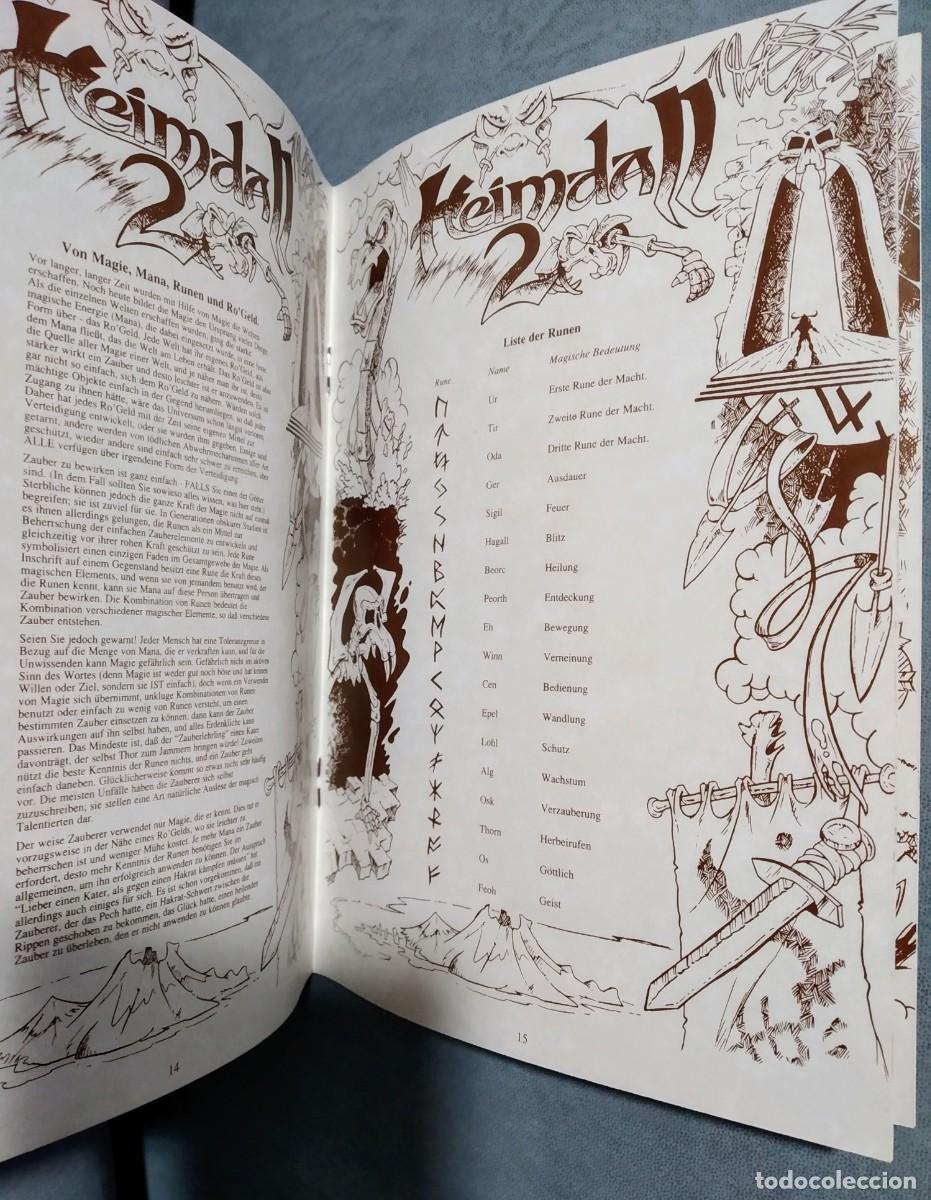 Heimdall
2
Von Magie, Mana, Runen und Ro'Geld.
Vor langer, langer Zeit wurden mit Hilfe von Magie die Welten
erschaffen. Noch heute bildet die Magie den Ursprung vieler Dinge.
Als die einzelnen Welten erschaffen wurden, ging die starke
magische Energie (Mana), die dabei eingesetzt wurde, in eine feste
Form über - das Ro'Geld. Jede Welt hat ihr eigenes Ro'Geld, aus
dem Mana fließt, das die Welt am Leben erhält. Das Ro'Geld ist also
die Quelle aller Magie einer Welt, und je näher man ihr ist, desto
stärker wirkt ein Zauber und desto leichter ist er anzuwenden. Es ist
gar nicht so einfach, sich dem Ro'Geld zu nähern. Würden solch
mächtige Objekte einfach in der Gegend herumliegen, so daß jeder
Zugang zu ihnen hätte, wäre das Universum schon längst verloren.
Daher hat jedes Ro'Geld mit der Zeit seine eigenen Mittel zur
Verteidigung entwickelt, oder sie wurden ihm gegeben. Einige sind
getarnt, andere werden von tödlichen Abwehrmechanismen aller Art
geschützt, wieder andere sind einfach sehr schwer zu erreichen, aber
ALLE verfügen über irgendeine Form der Verteidigung.
Zauber zu bewirken ist ganz einfach - FALLS Sie einer der Götter
sind. (In dem Fall sollten Sie sowieso alles wissen, was hier steht.)
Sterbliche können jedoch die ganze Kraft der Magie nicht auf einmal
begreifen; sie ist zuviel für sie. In Generationen obskurer Studien ist
es ihnen allerdings gelungen, die Runen als ein Mittel zur
Beherrschung der einfachen Zauberelemente zu entwickeln und
gleichzeitig vor ihrer rohen Kraft geschützt zu sein. Jede Rune
symbolisiert einen einzigen Faden im Gesamtgewebe der Magie. Als
Inschrift auf einem Gegenstand besitzt eine Rune die Kraft dieses
magischen Elements, und wenn sie von jemandem benutzt wird, der
die Runen kennt, kann sie Mana auf diese Person übertragen und
Zauber bewirken. Die Kombination von Runen bedeutet die
Kombination verschiedener magischer Elemente, so daß verschiedene
Zauber entstehen.
Seien Sie jedoch gewarnt! Jeder Mensch hat eine Toleranzgrenze in
Bezug auf die Menge von Mana, die er verkraften kann, und für die
Unwissenden kann Magie gefährlich sein. Gefährlich nicht im aktiven
Sinn des Wortes (denn Magie ist weder gut noch böse und hat keinen
Willen oder Ziel, sondern sie IST einfach), doch wenn ein Verwender
von Magie sich übernimmt, unkluge Kombinationen von Runen
benutzt oder einfach zu wenig von Runen versteht, um einen
bestimmten Zauber einsetzen zu können, dann kann der Zauber
Auswirkungen auf ihn selbst haben, und alles Erdenkliche kann
passieren. Das Mindeste ist, daß der "Zauberlehrling" einen Kater
davonträgt, der selbst Thor zum Jammern bringen würde! Zuweilen
nützt die beste Kenntnis der Runen nichts, und ein Zauber geht
einfach daneben. Glücklicherweise kommt so etwas nicht sehr häufig
vor. Die meisten Unfälle haben die Zauberer sich selbst
zuzuschreiben; sie stellen eine Art natürliche Auslese der magisch
Talentierten dar.
Der weise Zauberer verwendet nur Magie, die er kennt. Dies tut er
vorzugsweise in der Nähe eines Ro'Gelds, wo sie leichter zu
beherrschen ist und weniger Mühe kostet. Je mehr Mana ein Zauber
erfordert, desto mehr Kenntnis der Runen benötigen Sie im
allgemeinen, um ihn erfolgreich anwenden zu können. Der Ausspruch
"Lieber einen Kater, als gegen einen Hakrat kämpfen müssen" hat
allerdings auch einiges für sich. Es ist schon vorgekommen, daß ein
Zauberer, der das Pech hatte, ein Hakrat-Schwert zwischen die
Rippen geschoben zu bekommen, das Glück hatte, einen heilenden
Zauber zu überleben, den er nicht anwenden zu können glaubte.
14
Heimdall
2
Liste der Runen
Rune Name Magische Bedeutung
Ur Erste Rune der Macht.
Tir Zweite Rune der Macht.
Oda Dritte Rune der Macht.
Ger Ausdauer
Sigil Feuer
Hagall Blitz
Beorc Heilung
Peorth Entdeckung
Eh Bewegung
Winn Verneinung
Cen Bedienung
Epel Wandlung
Lohl Schutz
Alg Wachstum
Osk Verzauberung
Thorn Herbeirufen
Os Göttlich
Feoh Geist
15
todocoleccion